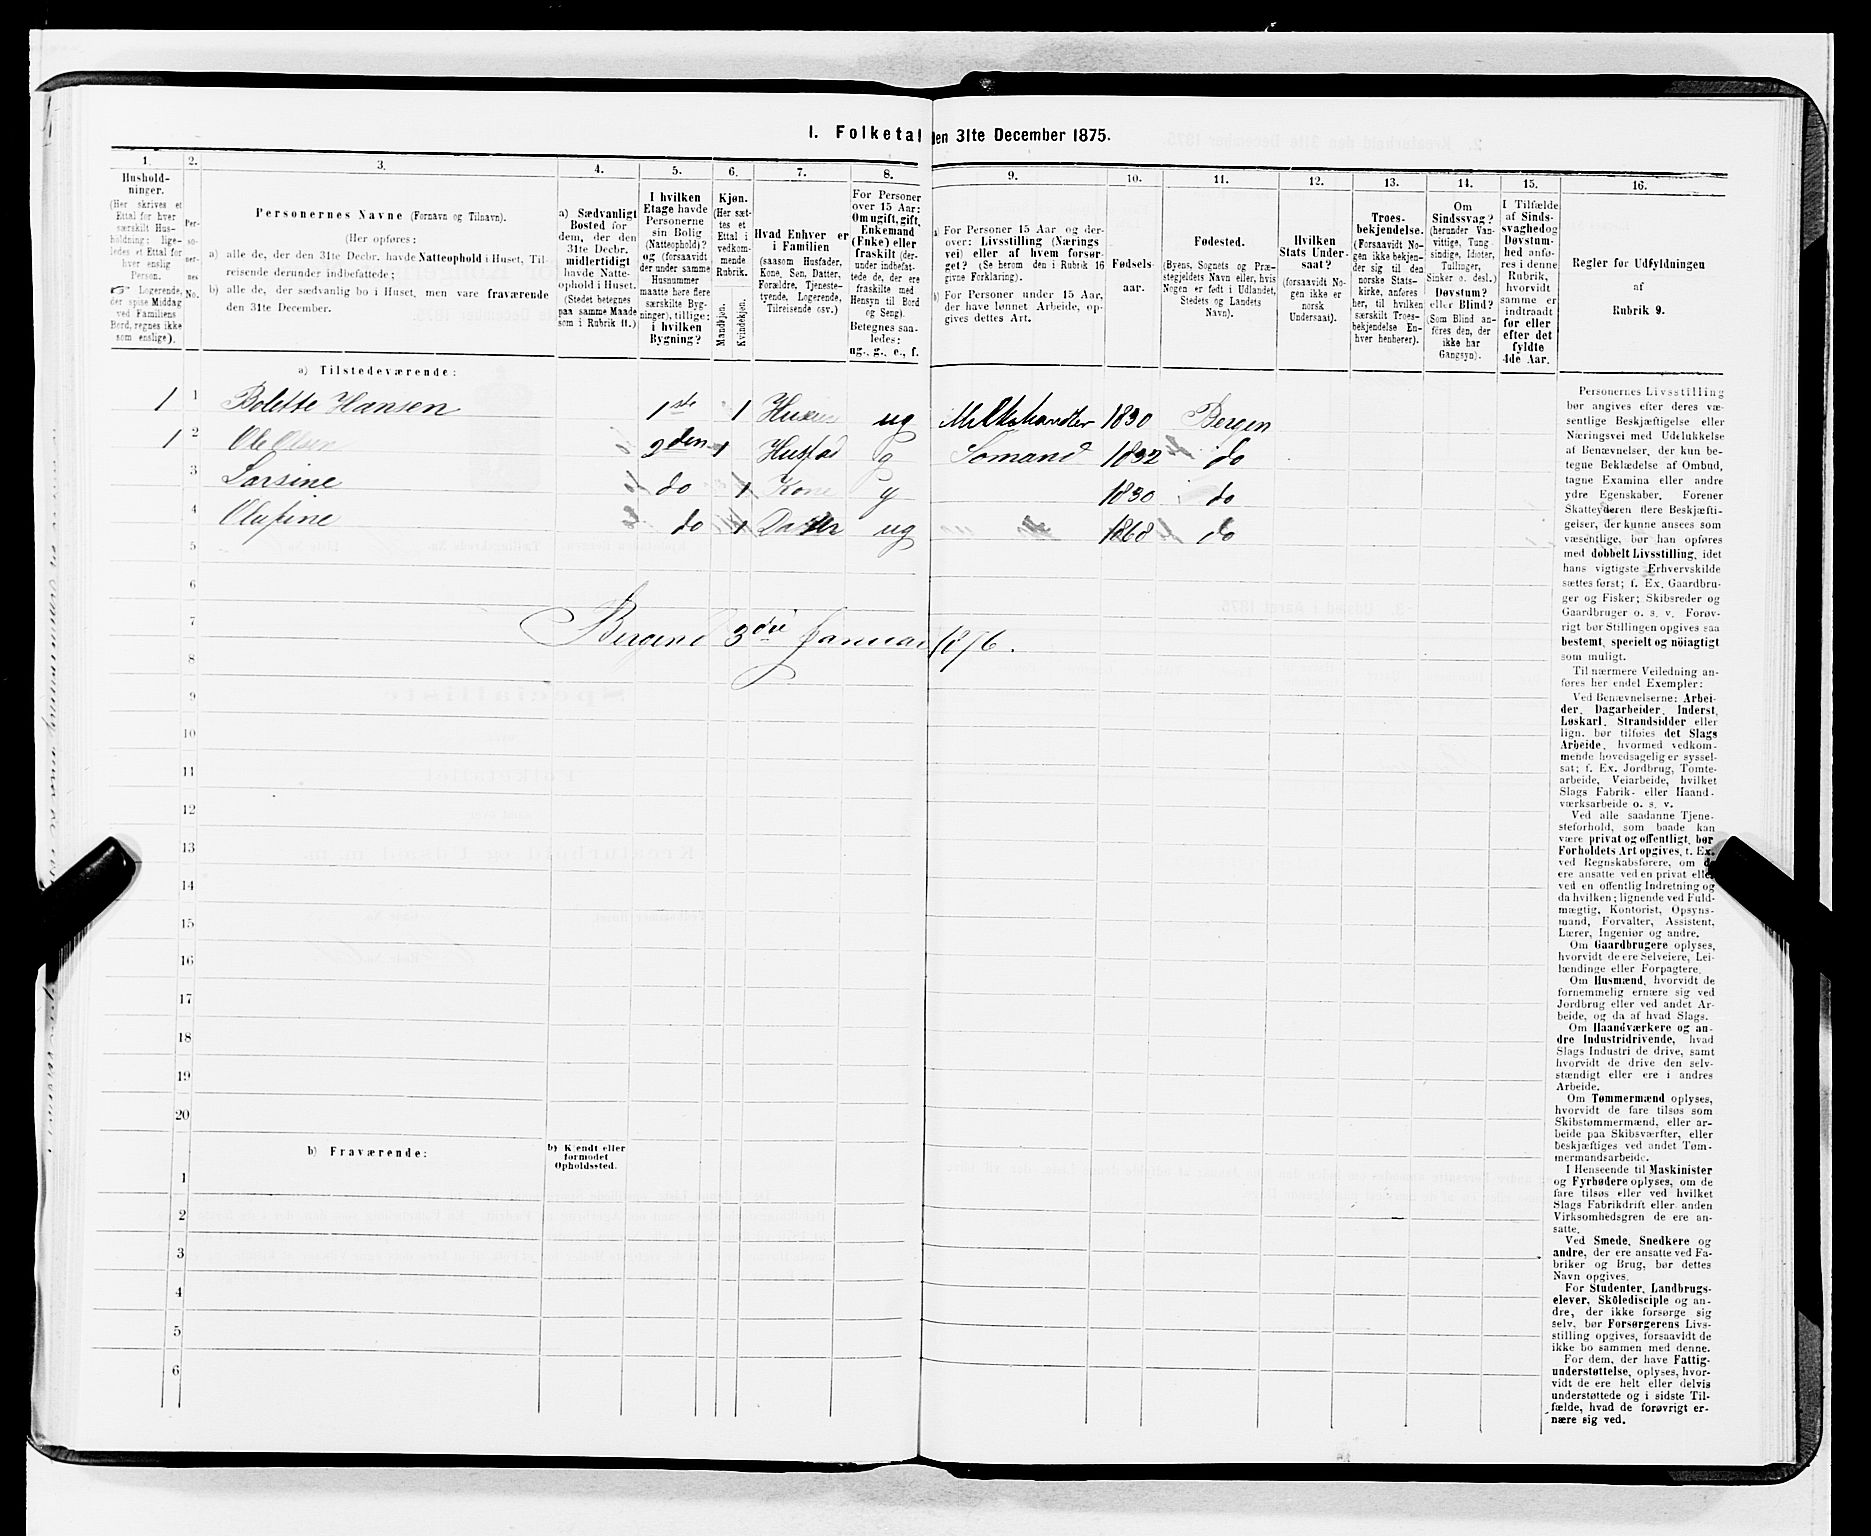 I. Folketal den 31te December 1875.
1.
Hushold-
ninger.
(Her skrives et
Ettal for hver
særskilt Hus-
holdning; lige-
ledes et Ettal for
hver enslig
Person.
Logerende,
der spise Middag
ved Familiens
Bord, regnes ikke
som enslige).
2.
Per-
so-
ner-
nes
No.
3.
Personernes Navne (Fornavn og Tilnavn).
(Her opføres:
a) alle de, der den 31te Decbr. havde Natteophold i Huset, Til-
reisende derunder indbefattede;
b) alle de, der sædvanlig bo i Huset, men vare fraværende
den 31te December.
4.
a) Sædvanligt
Bosted for
dem, der den
31te Decbr.
midlertidigt
havde Natte-
ophold i Huset.
(Stedet betegnes
paa samme Maade
som i Rubrik 11.)
5.
I hvilken
Etage havde
Personerne
sin Bolig
(Natteophold)?
og (forsaavidt
der under samme
Husnummer
maatte høre flere
særskilte Byg-
ninger), tillige:
i hvilken
Bygning?
6.
Kjøn.
(Her sæt-
tes et
Ettal i
vedkom-
mende
Rubrik.
Mandkjøn.
Kvindekjøn.
7.
Hvad Enhver er
i Familien
(saasom Husfader,
Kone, Søn, Datter,
Forældre, Tjeneste-
tyende, Logerende,
Tilreisende osv.)
8.
For Personer
over 15 Aar:
Om ugift, gift,
Enkemand
(Enke) eller
fraskilt (der-
under indbefat-
tede de, der ere
fraskilte med
Hensyn til Bord
og Seng).
Betegnes saa-
ledes:
ug., g., e., f.
9.
a) For Personer 15 Aar og der-
over: Livsstilling (Nærings
vei) eller af hvem forsør-
get? (Se herom den i Rubrik 16
givne Forklaring).
b) For Personer under 15 Aar,
der have lønnet Arbeide, op-
gives dettes Art.
10.
Fødsels-
aar.
11.
Fødested.
(Byens, Sognets og Præ-
stegjeldets Navn eller, hvis
Nogen er født i Udlandet,
Stedets og Landets
Navn).
12.
Hvilken
Stats Under-
saat?
(forsaavidt No-
gen ikke er
norsk
Undersaat).
13.
Troes-
bekjendelse.
(Forsaavidt No-
gen ikke bekjen-
der sig til den
norske Stats-
kirke, anføres
her, til hvilken
særskilt Troes-
bekjendelse En-
hver henhører).
14.
Om
Sindssvag?
(herunder Van-
vittige, Tung
sindige, Idioter,
Tullinger,
Sinker o. desl.)
Døvstum?
eller Blind?
(Som Blind an-
føres den, der
ikke har
Gangsyn).
15.
I Tilfælde
af Sinds-
svaghed og
Døvstum-
hed anfø-
res i denne
Rubrik,
hvorvidt
samme er
indtraadt
før eller
efter det
fyldte
4de Aar.
16.
Regler for Udfyldningen
af
Rubrik 9.
a) Tilstedeværende:
1 1 Bolette Hansen 1ste 1 ug Melkehandler 1830 Bergen
1 2 Ole Olsen 2den 1 Husfad g Sömand 1832 do
3 Larsine do 1 Kone g 1830 do
4 Olufine do 1 Datter ug 1868 do
5
6
7
Bergen d 3die Januar 1876.
8
9
10
11
12
13
14
15
16
17
18
19
20
b) Fraværende:
b) Kjendt eller
formodet
Opholdssted.
1
2
3
4
5
6
Personernes Livsstilling
bør angives efter deres væ-
sentlige Beskjæftigelse eller
Næringsvei med Udelukkelse
af Benævnelser, der kun be-
tegne Beklædelse af Ombud,
tagne Examina eller andre
ydre Egenskaber. Forener
Skatteyderen flere Beskjæfti-
gelser, der kunne ansees som
væsentlige, bør han opføres
med dobbelt Livsstilling, idet
hans vigtigste Erhvervskilde
sættes først; f. Ex. Gaardbru-
ger og Fisker; Skibsreder og
Gaardbruger o. s. v. Forøv-
rigt bør Stillingen opgives saa
bestemt, specielt og nöiagtigt
som muligt.
Til nærmere Veiledning an-
føres her endel Exempler:
Ved Benævnelserne: Arbei-
der, Dagarbeider, Inderst,
Løskarl, Strandsidder eller
lign. bør tilføies det Slags
Arbeide, hvormed vedkom-
mende hovedsagelig er syssel-
sat; f. Ex. Jordbrug, Tomte-
arbeide, Veiarbeide, hvilket
Slags Fabrik- eller Haand-
værksarbeide o. s. v.
Ved alle saadanne Tjene-
steforhold, som baade kan
være privat og offentligt, bør
Forholdets Art opgives, t. Ex.
ved Regnskabsførere, om de
ere ansatte ved en privat eller
ved en offentlig Indretning og
da hvilken; lignende ved Fuld-
mægtig, Kontorist, Opsyns-
mand, Forvalter, Assistent,
Lærer, Ingeniør og andre.
Om Gaardbrugere oplyses,
hvorvidt de ere Selveiere, Lei-
lændinge eller Forpagtere.
Om Husmænd, hvorvidt de
fornemmelig ernære sig ved
Jordbrug eller ved andet Ar-
beide, og da af hvad Slags.
Om Haandværkere og an-
dre Industridrivende, hvad
Slags Industri de drive, samt
hvorvidt de drive den selv-
stændigt eller ere i andres
Arbeide.
Om Tømmermænd oplyses,
hvorvidt de fare tilsøs som
Skibstømmermænd, eller ar-
beide paa Skibsværfter, eller
beskjæftiges ved andet Tøm-
mermandsarbeide.
I Henseende til Maskinister
og Fyrbødere oplyses, om de
fare tilsøs eller ved hvilket
Slags Fabrikdrift eller anden
Virksomhedsgren de ere an-
satte.
Ved Smede, Snedkere og
andre, der ere ansatte ved Fa-
briker og Brug, bør dettes
Navn opgives.
For Studenter, Landbrugs-
elever, Skölediscple og an-
dre, der ikke forsørge sig
selv, bør Forsørgerens Livs-
stilling opgives, forsaavidt de
ikke bo sammen med denne.
For dem, der have Fattig-
understøttelse, oplyses, hvor-
vidt de ere helt eller delvis
understøttede og i sidste Til-
fælde, hvad de forøvrigt er-
nære sig ved.